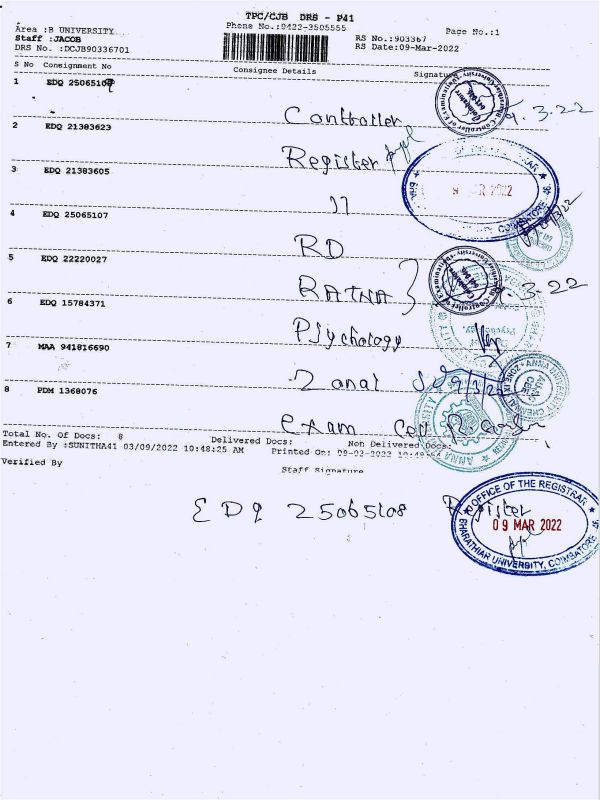 TPC/CJB DRS - P41
Phone No.:0422-3505555
Page No.:1
Area :B UNIVERSITY
Staff :JACOB
DRS No. :DCJB90336701
RS No.:903367
RS Date:09-Mar-2022
S No Consignment No Consignee Details Signature
1 EDQ 25065109
Controller 9.3.22
2 EDQ 21383623
Register
3 EDQ 21383605
11
OFFICE OF THE REGISTRAR
9 MAR 2022
COIMBATORE
4 EDQ 25065107
RD
5 EDQ 22220027
RATNA
9.3.22
6 EDQ 15784371
Psychology
7 MAA 941816690
Zonal 9/3/22
8 PDM 1368076
Exam Cell
Total No. Of Docs: 8 Delivered Docs: Non Delivered Docs:
Entered By :SUNITHA41 03/09/2022 10:48:25 AM Printed On: 09-03-2022 10:48:54
Verified By Staff Signature
EDQ 25065108 Register
OFFICE OF THE REGISTRAR
09 MAR 2022
BHARATHIAR UNIVERSITY, COIMBATORE